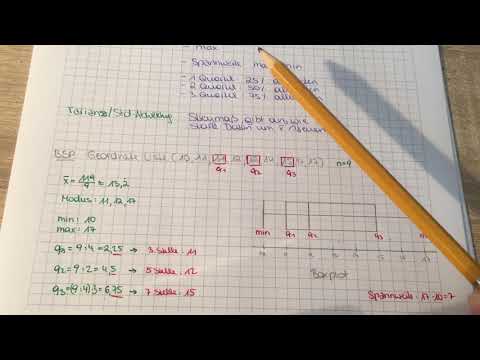 - max
- Spannweite max min
- 1 Quartil 25%
- 2 Quartil 50%
- 3 Quartil 75%
Varianz/Std-Abweichung Streumaß, gibt an wie
stark Daten um x̄ streuen
BSP Geordnete Liste (10, 11, 12 12, 17) n=9
q₁ q₂ q₃
x̄ = 119/9 = 13,2
Modus: 11, 12, 17
min: 10
max: 17
q₁ = 9:4 = 2,25 → 3. Stelle: 11
q₂ = 9:2 = 4,5 → 5 Stelle: 12
q₃ = (9:4)·3 = 6,75 → 7 Stelle: 15
min q₁ q₂ q₃
Boxplot
Spannweite: 17-10=7